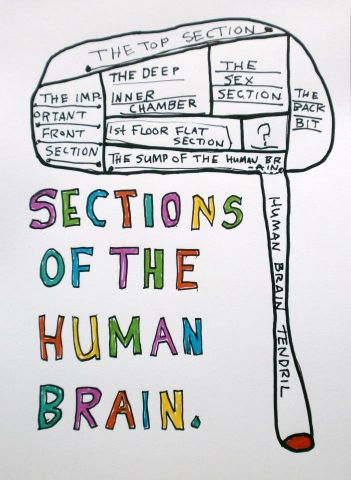 THE TOP SECTION
THE DEEP
INNER
CHAMBER
THE
SEX
SECTION
THE IMP
ORTANT
FRONT
SECTION
THE
BACK
BIT
1st FLOOR FLAT
SECTION
?
THE SUMP OF THE HUMAN BR
-AIN
HUMAN BRAIN TENDRIL
SECTIONS
OF THE
HUMAN
BRAIN.